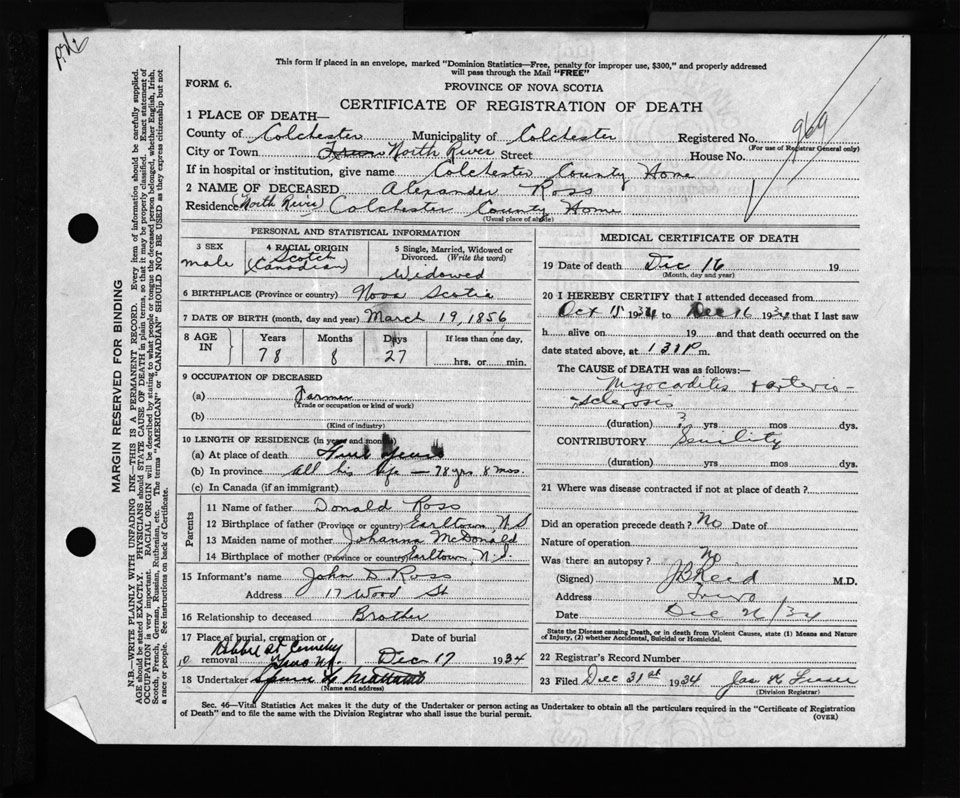 This form if placed in an envelope, marked "Dominion Statistics—Free, penalty for improper use, $300," and properly addressed
will pass through the Mail "FREE"
FORM 6.
PROVINCE OF NOVA SCOTIA
CERTIFICATE OF REGISTRATION OF DEATH
1 PLACE OF DEATH—
County of Colchester Municipality of Colchester Registered No. 969
(For use of Registrar General only)
City or Town Truro North River Street House No.
If in hospital or institution, give name Colchester County Home
2 NAME OF DECEASED Alexander Ross
Residence (North River) Colchester County Home
(Usual place of abode)
PERSONAL AND STATISTICAL INFORMATION
3 SEX
male
4 RACIAL ORIGIN
Scotch
(Canadian)
5 Single, Married, Widowed or
Divorced. (Write the word)
Widowed
6 BIRTHPLACE (Province or country) Nova Scotia
7 DATE OF BIRTH (month, day and year) March 19, 1856
8 AGE
IN
Years Months Days If less than one day,
78 8 27 hrs. or min.
9 OCCUPATION OF DECEASED
(a) Farmer
(Trade or occupation or kind of work)
(b)
(Kind of industry)
10 LENGTH OF RESIDENCE (in years and months)
(a) At place of death years
(b) In province All his life — 78 yrs 8 mos.
(c) In Canada (if an immigrant)
Parents
11 Name of father Donald Ross
12 Birthplace of father (Province or country) Earltown, N.S
13 Maiden name of mother Johanna McDonald
14 Birthplace of mother (Province or country) Earltown, N.S.
15 Informant's name John D. Ross
Address 17 Wood St
16 Relationship to deceased Brother
17 Place of burial, cremation or
removal
St Cemetery
Date of burial
Dec 17 1934
18 Undertaker
(Name and address)
MEDICAL CERTIFICATE OF DEATH
19 Date of death Dec 16 19
(Month, day and year)
20 I HEREBY CERTIFY that I attended deceased from
Oct 15 1934 to Dec 16 1934 that I last saw
h alive on 19 and that death occurred on the
date stated above, at 1 31 P m.
The CAUSE OF DEATH was as follows:—
Myocaditis + arterio-
sclerosis
(duration) ? yrs mos dys.
CONTRIBUTORY Senility
(duration) yrs mos dys.
21 Where was disease contracted if not at place of death?
Did an operation precede death? No Date of
Nature of operation
Was there an autopsy? No
(Signed) J B Reed M.D.
Address Truro
Date Dec 26/34
State the Disease causing Death, or in death from Violent Causes, state (1) Means and Nature
of Injury, (2) whether Accidental, Suicidal or Homicidal.
22 Registrar's Record Number
23 Filed Dec 31st 1934 Jas H Fraser
(Division Registrar)
Sec. 46—Vital Statistics Act makes it the duty of the Undertaker or person acting as Undertaker to obtain all the particulars required in the "Certificate of Registration
of Death" and to file the same with the Division Registrar who shall issue the burial permit. (OVER)
MARGIN RESERVED FOR BINDING
N.B.—WRITE PLAINLY WITH UNFADING INK—THIS IS A PERMANENT RECORD. Every item of information should be carefully supplied.
AGE should be stated EXACTLY. PHYSICIANS should STATE CAUSE OF DEATH in plain terms, so that it may be properly classified. Exact statement of
OCCUPATION is very important. RACIAL ORIGIN will be described by stating to what people or tongue the deceased person belonged, whether English, Irish,
Scotch, French, German, Russian, Ruthenian, etc. The terms "AMERICAN" or "CANADIAN" SHOULD NOT BE USED as they express citizenship but not
a race or people. See instructions on back of Certificate.